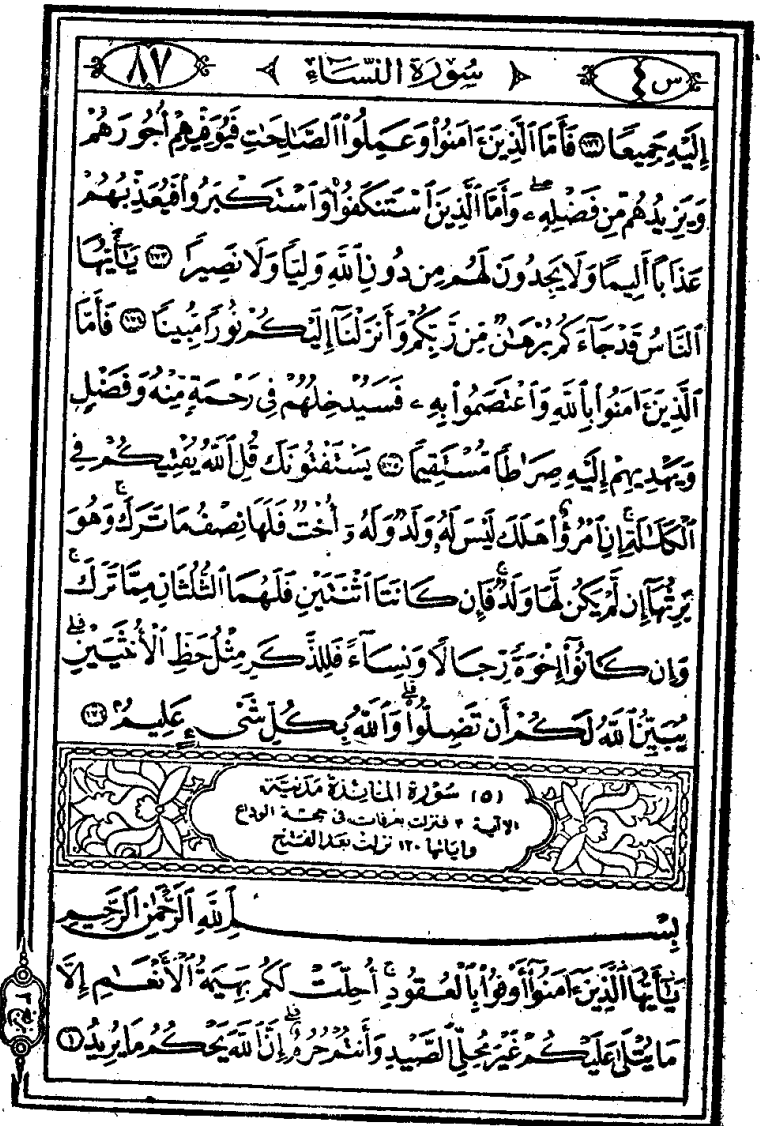 س ٤ سُورَةُ النِّسَاءِ ٨٧
إِلَيْهِ جَمِيعًا ١٧٢ فَأَمَّا ٱلَّذِينَ ءَامَنُوا۟ وَعَمِلُوا۟ ٱلصَّٰلِحَٰتِ فَيُوَفِّيهِمْ أُجُورَهُمْ
وَيَزِيدُهُم مِّن فَضْلِهِۦ ۖ وَأَمَّا ٱلَّذِينَ ٱسْتَنكَفُوا۟ وَٱسْتَكْبَرُوا۟ فَيُعَذِّبُهُمْ
عَذَابًا أَلِيمًا وَلَا يَجِدُونَ لَهُم مِّن دُونِ ٱللَّهِ وَلِيًّا وَلَا نَصِيرًا ١٧٣ يَٰٓأَيُّهَا
ٱلنَّاسُ قَدْ جَآءَكُم بُرْهَٰنٌ مِّن رَّبِّكُمْ وَأَنزَلْنَآ إِلَيْكُمْ نُورًا مُّبِينًا ١٧٤ فَأَمَّا
ٱلَّذِينَ ءَامَنُوا۟ بِٱللَّهِ وَٱعْتَصَمُوا۟ بِهِۦ فَسَيُدْخِلُهُمْ فِى رَحْمَةٍ مِّنْهُ وَفَضْلٍ
وَيَهْدِيهِمْ إِلَيْهِ صِرَٰطًا مُّسْتَقِيمًا ١٧٥ يَسْتَفْتُونَكَ قُلِ ٱللَّهُ يُفْتِيكُمْ فِى
ٱلْكَلَٰلَةِ ۚ إِنِ ٱمْرُؤٌا۟ هَلَكَ لَيْسَ لَهُۥ وَلَدٌ وَلَهُۥٓ أُخْتٌ فَلَهَا نِصْفُ مَا تَرَكَ ۚ وَهُوَ
يَرِثُهَآ إِن لَّمْ يَكُن لَّهَا وَلَدٌ ۚ فَإِن كَانَتَا ٱثْنَتَيْنِ فَلَهُمَا ٱلثُّلُثَانِ مِمَّا تَرَكَ ۚ
وَإِن كَانُوٓا۟ إِخْوَةً رِّجَالًا وَنِسَآءً فَلِلذَّكَرِ مِثْلُ حَظِّ ٱلْأُنثَيَيْنِ ۗ
يُبَيِّنُ ٱللَّهُ لَكُمْ أَن تَضِلُّوا۟ ۗ وَٱللَّهُ بِكُلِّ شَىْءٍ عَلِيمٌۢ ١٧٦
(٥) سُورَةُ المَائِدَة مَدَنِيَّة
الا آية ٣ فنزلت بعرفات فى حجة الوداع
وآياتها ١٢٠ نزلت بعد الفتح
بِسْمِ ٱللَّهِ ٱلرَّحْمَٰنِ ٱلرَّحِيمِ
يَٰٓأَيُّهَا ٱلَّذِينَ ءَامَنُوٓا۟ أَوْفُوا۟ بِٱلْعُقُودِ ۚ أُحِلَّتْ لَكُم بَهِيمَةُ ٱلْأَنْعَٰمِ إِلَّا
مَا يُتْلَىٰ عَلَيْكُمْ غَيْرَ مُحِلِّى ٱلصَّيْدِ وَأَنتُمْ حُرُمٌ ۗ إِنَّ ٱللَّهَ يَحْكُمُ مَا يُرِيدُ ١